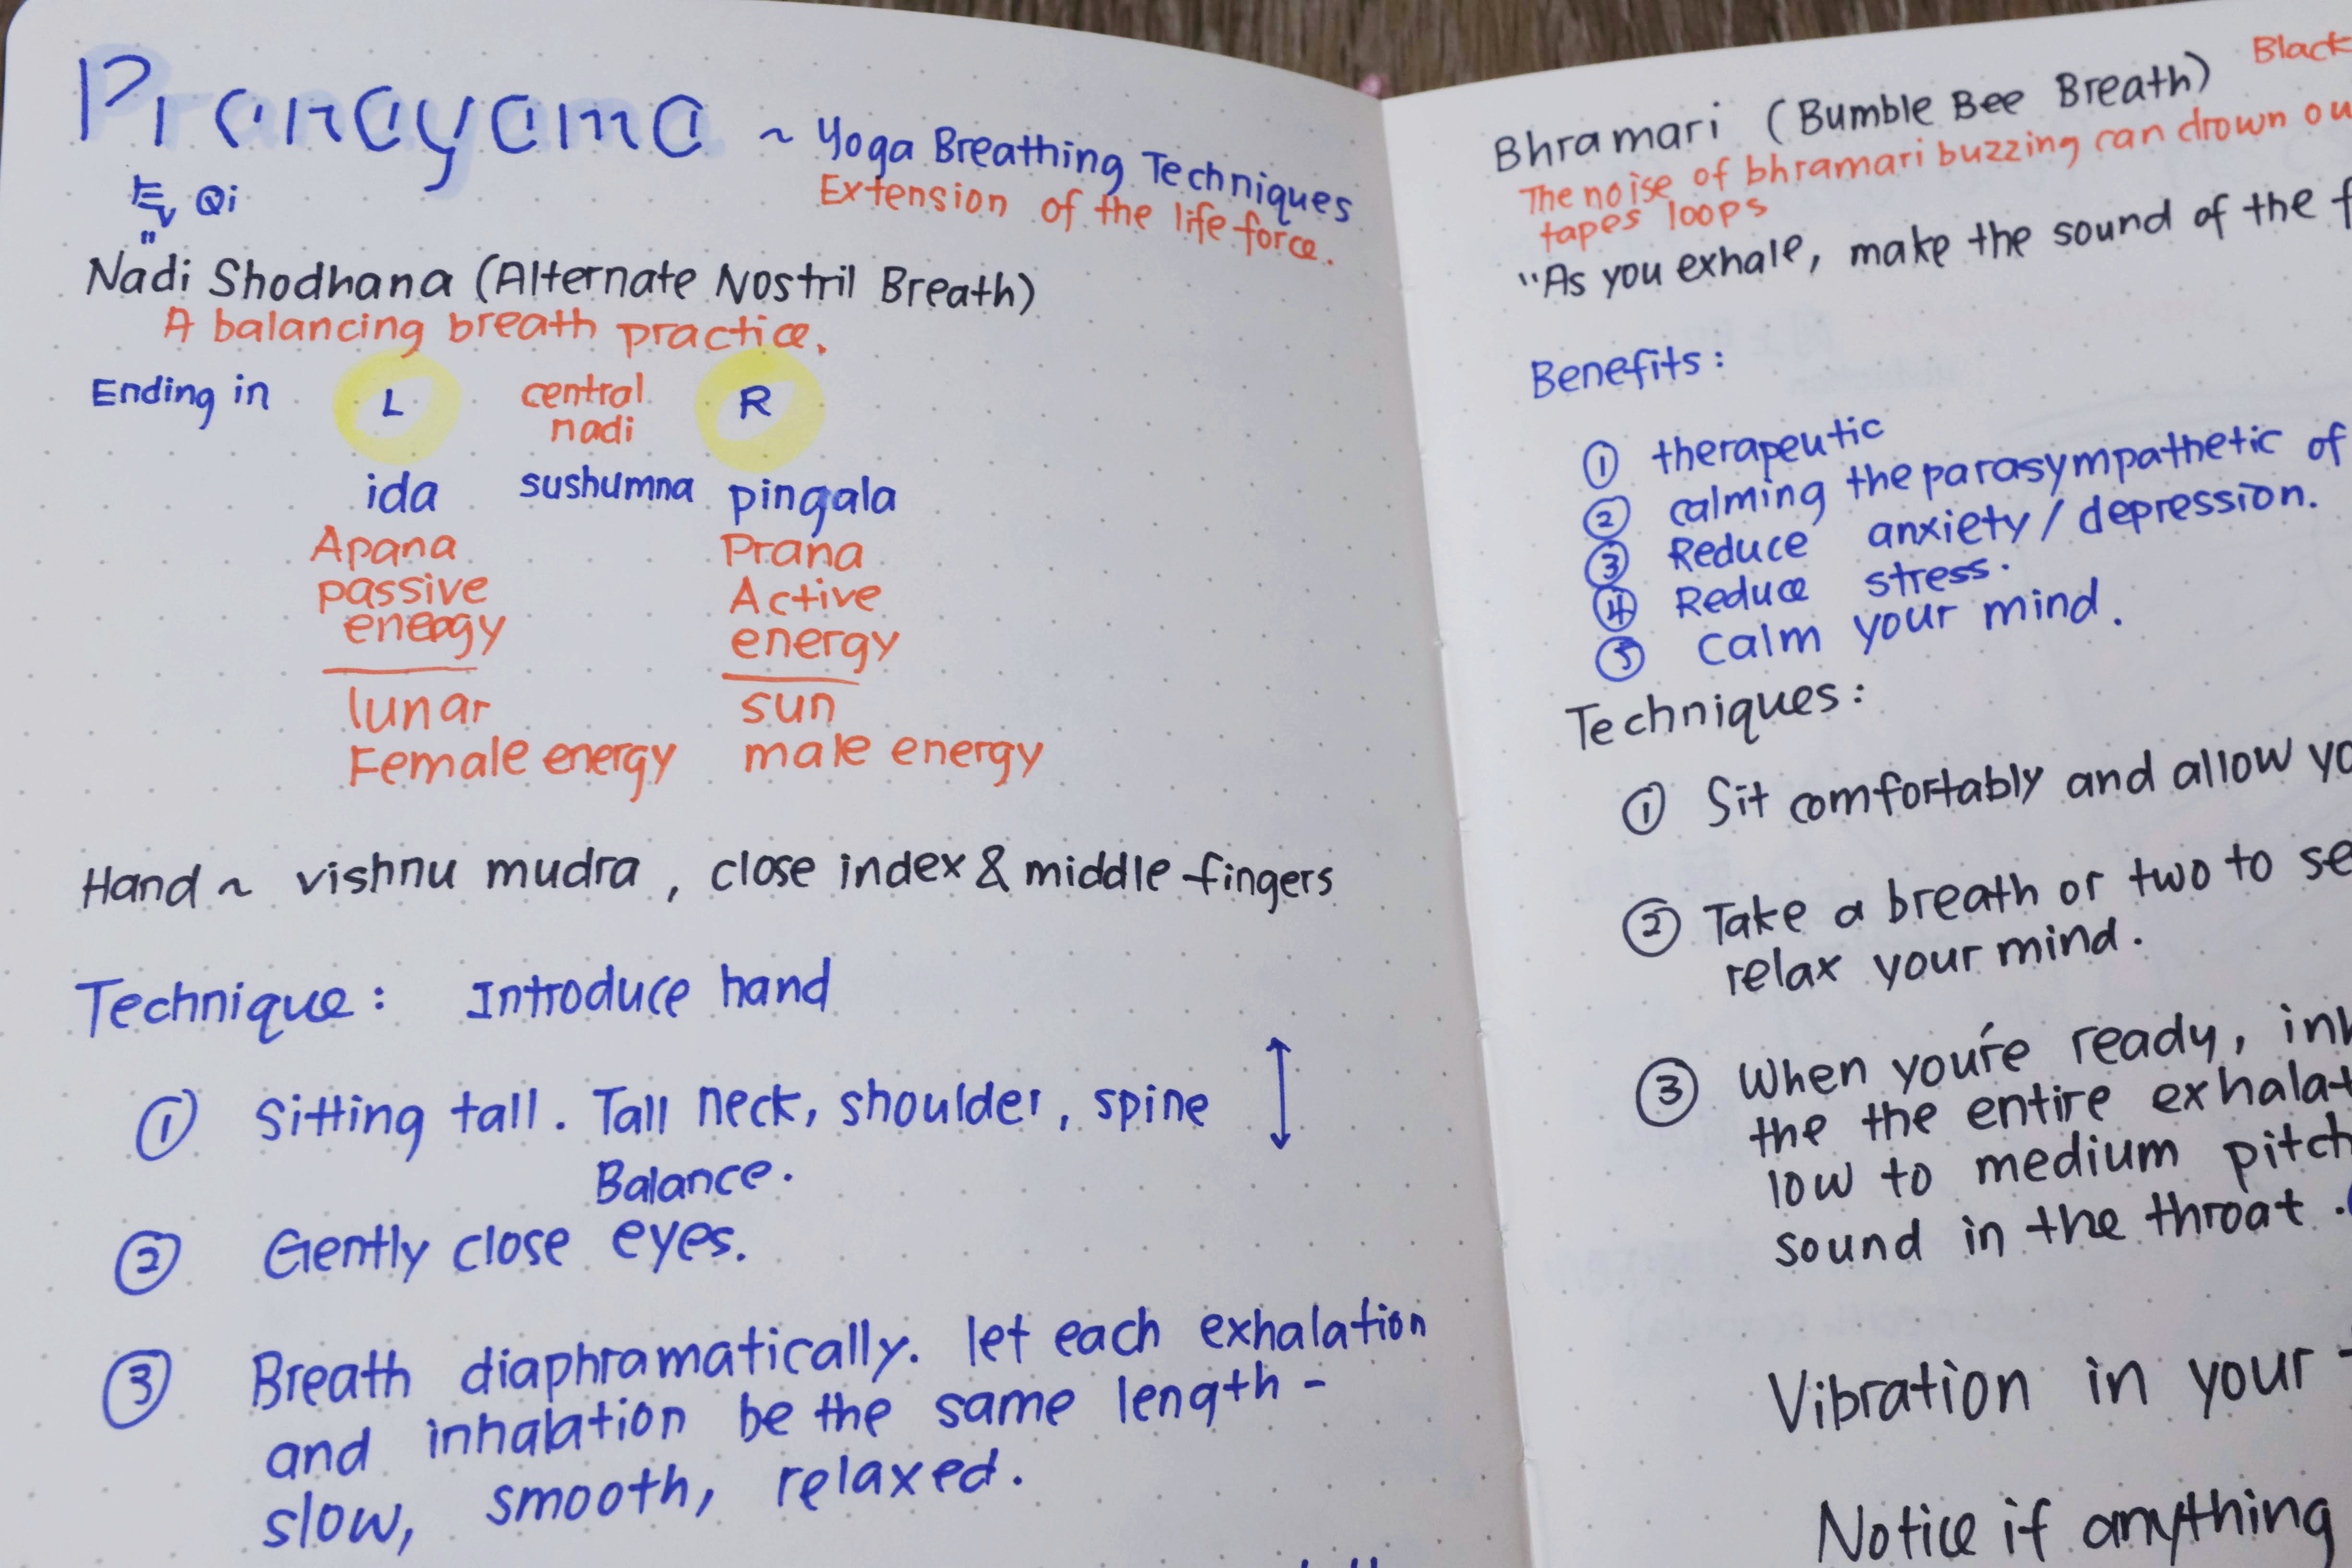 Pranayama ~ Yoga Breathing Techniques
Extension of the life force.
气 Qi
"
Nadi Shodhana (Alternate Nostril Breath)
A balancing breath practice.
Ending in L central nadi R
ida sushumna pingala
Apana Prana
passive Active
energy energy
lunar sun
Female energy male energy
Hand ~ vishnu mudra, close index & middle fingers
Technique: Introduce hand
① Sitting tall. Tall neck, shoulder, spine
Balance.
② Gently close eyes.
③ Breath diaphramatically. let each exhalation
and inhalation be the same length -
slow, smooth, relaxed.
Bhramari (Bumble Bee Breath) Black
The noise of bhramari buzzing can drown ou
tapes loops
"As you exhale, make the sound of the
Benefits:
① therapeutic
② calming the parasympathetic of
③ Reduce anxiety/depression.
④ Reduce stress.
⑤ Calm your mind.
Techniques:
① Sit comfortably and allow yo
② Take a breath or two to se
relax your mind.
③ When you're ready, inh
the the entire exhalat
low to medium pitch
sound in the throat.
Vibration in your
Notice if anything